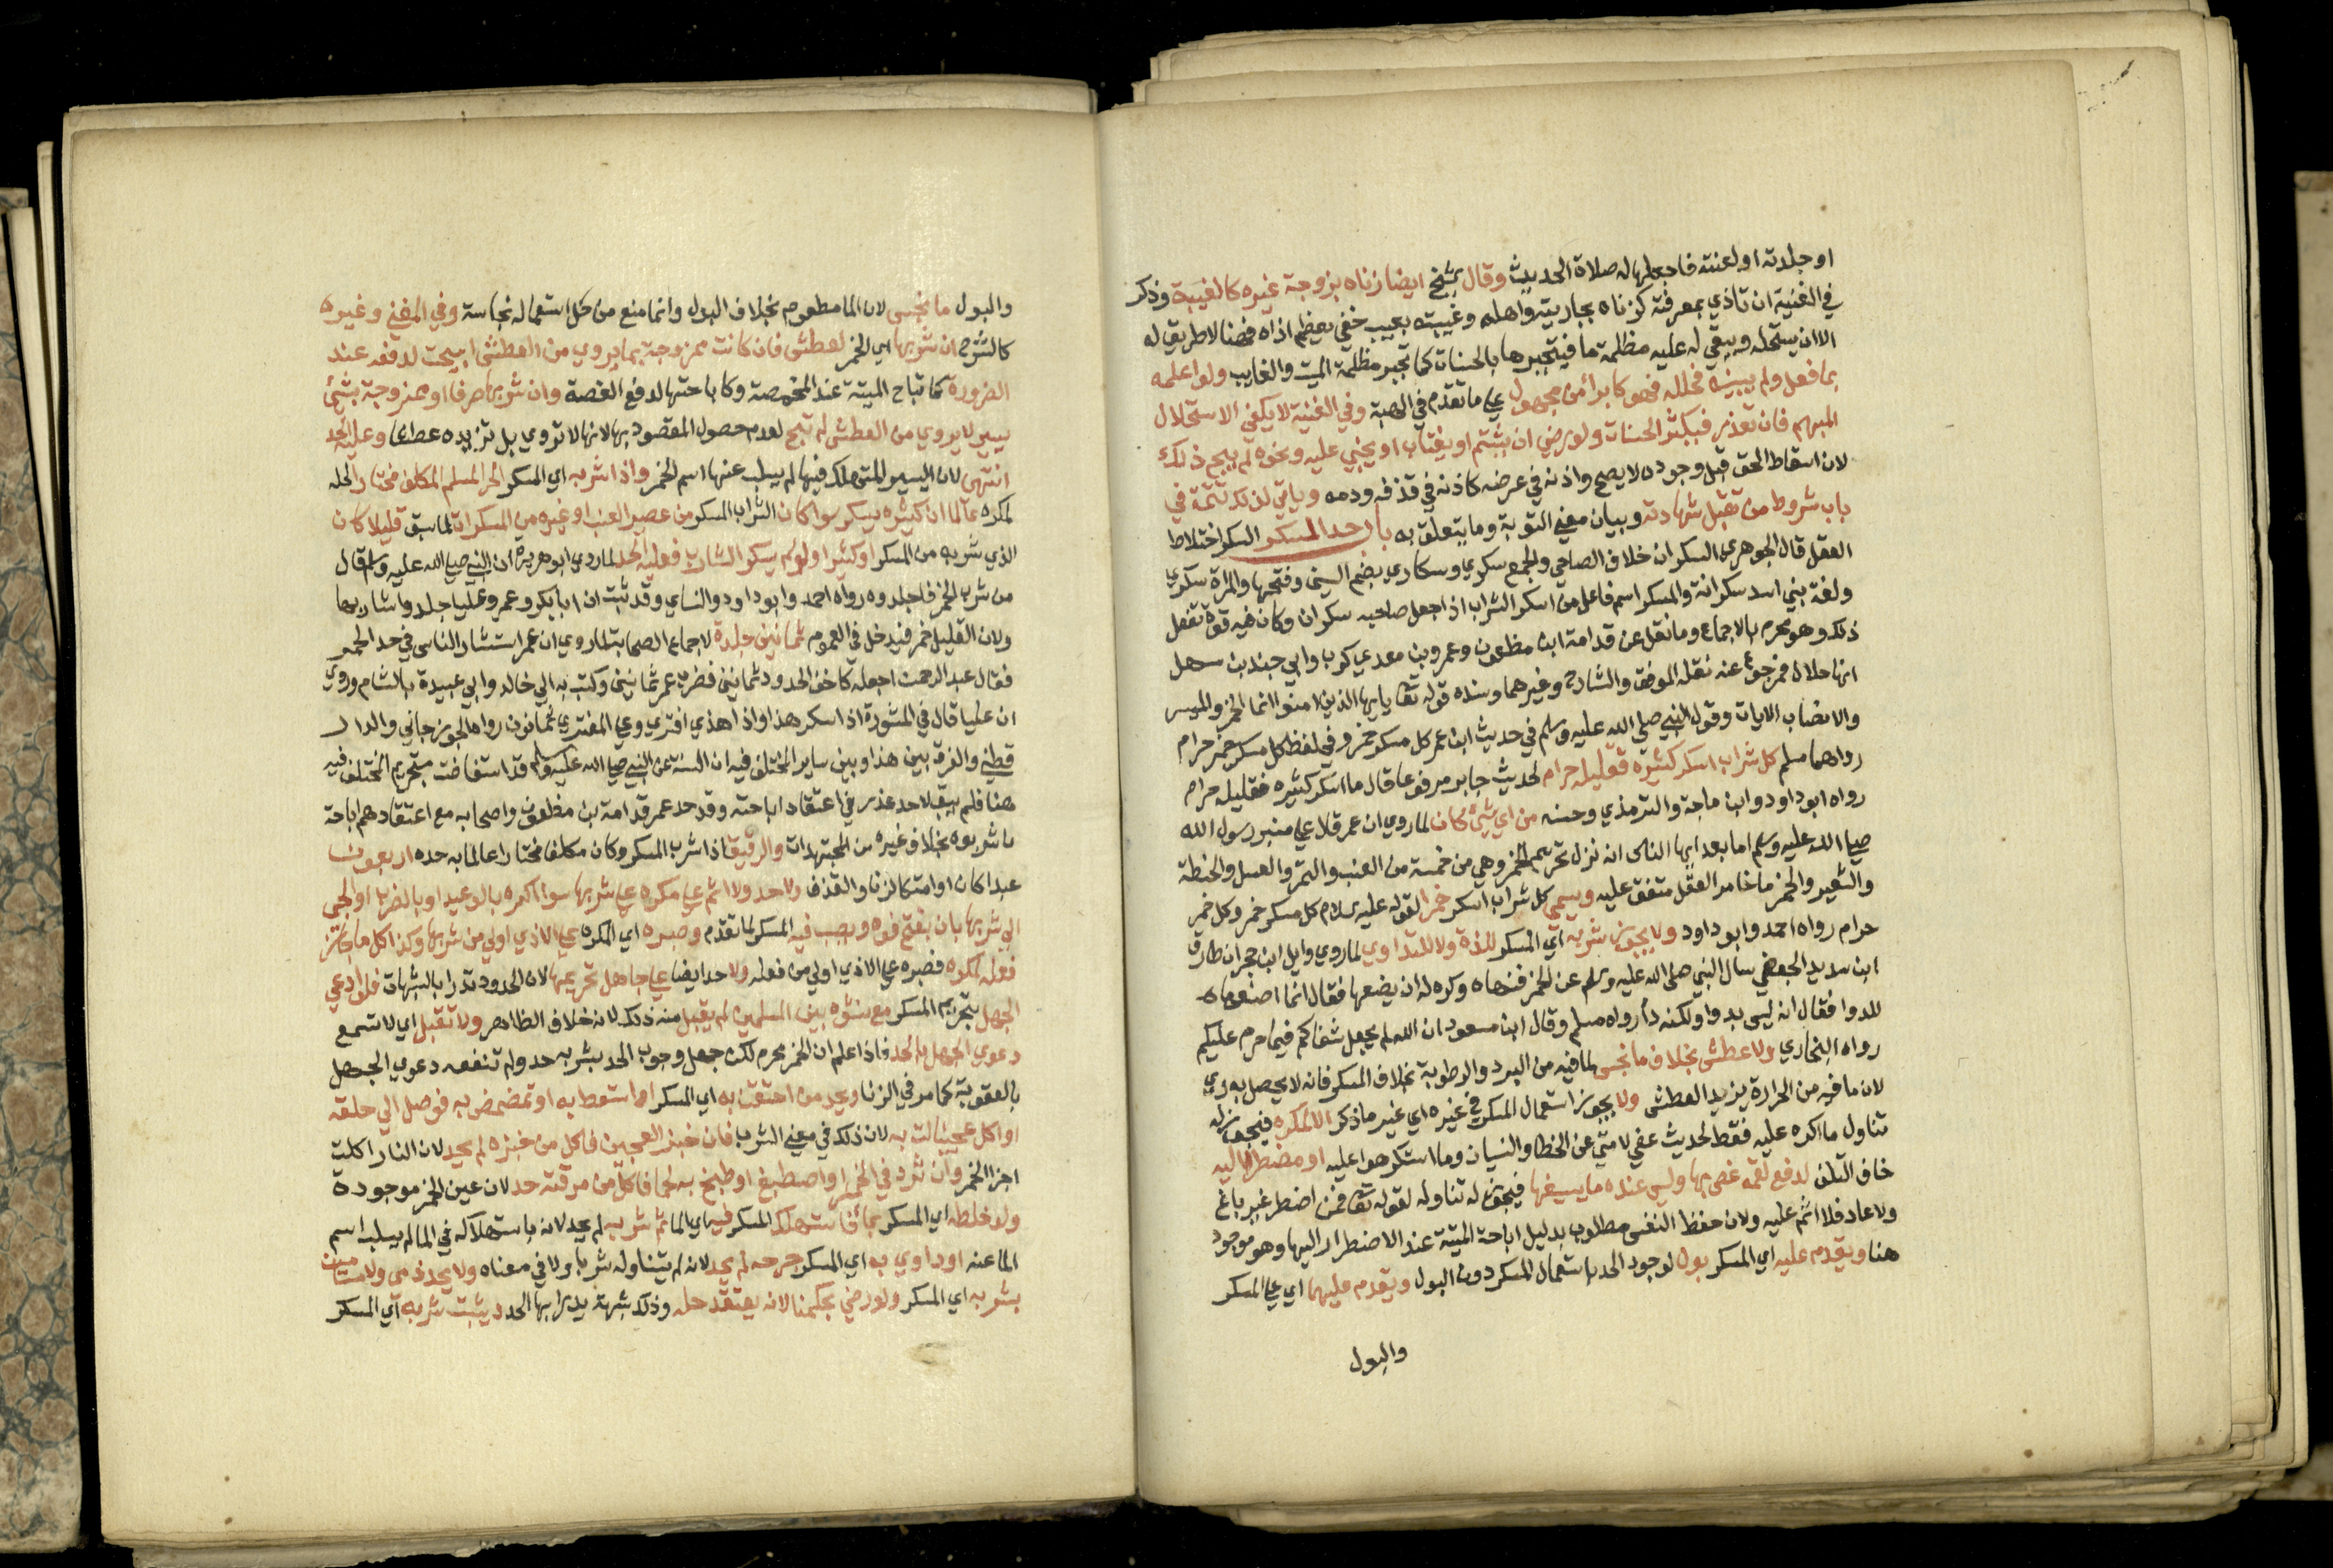 او جلدته او لعنته فاجعلها له صلاة الحديث وقال الشيخ ايضا زناه بزوجة غيره كالغيبة وذكر
في الغنية ان تاذي بمعرفته كزناه بجاريته واهله وغيبته بعيب خفي يعظم اذاه فهنا لا طريق له
الا ان يستحله ويبقي له عليه مظلمة ما فيتجبرها بالحسنات كما تجبر مظلمة الميت والغايب ولو اعلمه
بما فعل ولم يبينه فحلله فهو كابراء من مجهول علي ما تقدم في الهبة وفي الغنية لا يكفي الاستحلال
المبهم فان تعذر فيكثر الحسنات ولو رضي ان يشتم او يغتاب او يجني عليه ونحوه لم يبح ذلك
لان اسقاط الحق قبل وجوده لا يصح واذنه في عرضه كاذنه في قذفه ودمه وياتي لذلك تتمة في
باب شروط من تقبل شهادته وبيان معني التوبة وما يتعلق به باب حد المسكر السكر اختلاط
العقل قال الجوهري السكران خلاف الصاحي والجمع سكري وسكاري بضم السين وفتحها والمراة سكري
ولغة بني اسد سكرانة والمسكر اسم فاعل من اسكر الشراب اذا جعل صاحبه سكران وكان فيه قوة تفعل
ذلك وهو محرم بالاجماع وما نقل عن قدامة ابن مظعون وعمرو بن معدي كرب وابي جندب بن سهل
انها حلال فمرجوع عنه نقله الموفق والشارح وغيرهما وسنده قوله تعا يايها الذين امنوا انما الخمر والميسر
والانصاب الايات وقول النبي صلي الله عليه وسلم في حديث ابن عمر كل مسكر خمر وفي لفظ كل مسكر خمر حرام
رواهما مسلم كل شراب اسكر كثيره فقليله حرام لحديث جابر مرفوعا قال ما اسكر كثيره فقليله حرام
رواه ابو داود وابن ماجة والترمذي وحسنه من اي شيء كان لما روي ان عمر قال علي منبر رسول الله
صلي الله عليه وسلم اما بعد ايها الناس انه نزل تحريم الخمر وهي من خمسة من العنب والتمر والعسل والحنطة
والشعير والخمر ما خامر العقل متفق عليه ويسمي كل شراب اسكر خمرا لقوله عليه السلام كل مسكر خمر وكل خمر
حرام رواه احمد وابو داود ولا يجوز شربه اي المسكر للذة ولا للتداوي لما روي وايل ابن حجر ان طارق
ابن سديد الجعفي سال النبي صلي الله عليه وسلم عن الخمر فنهاه وكره له ان يصنعها فقال انما اصنعها
للدوا فقال انه ليس بدوا ولكنه داء رواه مسلم وقال ابن مسعود ان الله لم يجعل شفاكم فيما حرم عليكم
رواه البخاري ولا عطش بخلاف ما نجس لما فيه من البرد والرطوبة بخلاف المسكر فانه لا يحصل به ري
لان ما فيه من الحرارة يزيد العطش ولا يجوز استعمال المسكر في غيره اي غير ما ذكر الا لمكره فيجوز له
تناول ما اكره عليه فقط لحديث عفي لامتي عن الخطا والنسيان وما استكرهوا عليه او مضطر اليه
خاف التلف لدفع لقمة غص بها وليس عنده ما يسيغها فيجوز له تناوله لقوله تعا فمن اضطر غير باغ
ولا عاد فلا اثم عليه ولان حفظ النفس مطلوب بدليل اباحة الميتة عند الاضطرار اليها وهو موجود
هنا ويقدم عليه اي المسكر بول لوجود الحد باستعمال المسكر دون البول ويقدم عليهما اي علي المسكر
والبول
والبول ما نجس لان الما مطعوم بخلاف البول وانما منع من حل استعماله نجاسة وفي المغني وغيره
كالشرح ان شربها اي الخمر لعطش فان كانت ممزوجة بما يروي من العطش ابيحت لدفعه عند
الضرورة كما تباح الميتة عند المخمصة وكاباحتها لدفع الغصة وان شربها صرفا او ممزوجة بشي
يسير لا يروي من العطش لم تبح لعدم حصول المقصود بها لانها لا تروي بل تزيده عطشا وعليه الحد
انتهي لان اليسير المستهلك فيها لم يسلب عنها اسم الخمر واذا شربه اي المسكر الحر المسلم المكلف مختارا لحله
لمكره عالما ان كثيره يسكر سوا كان الشراب المسكر من عصير العنب او غيره من المسكرات لما سبق قليلا كان
الذي شربه من المسكر او كثيرا ولو لم يسكر الشارب فعليه الحد لما روي ابو هريرة ان النبي صلي الله عليه وسلم قال
من شرب الخمر فاجلدوه رواه احمد وابو داود والنساي وقد ثبت ان ابا بكر وعمر وعليا جلدوا شاربها
ولان القليل خمر فيدخل في العموم ثمانين جلدة لاجماع الصحابة لما روي ان عمر استشار الناس في حد الخمر
فقال عبد الرحمن اجعله كاخف الحدود ثمانين فضرب عمر ثمانين وكتب به الي خالد وابي عبيدة بالشام وروي
ان عليا قال في المشورة اذا سكر هذا واذا هذي افتري وعلي المفتري ثمانون رواه الجوزجاني والدار
قطني والفرق بين هذا وبين ساير المختلف فيه ان السنة عن النبي صلي الله عليه وسلم قد استفاضت بتحريم المختلف فيه
هنا فلم يبق لاحد عذر في اعتقاد اباحته وقد حد عمر قدامة بن مظعون واصحابه مع اعتقادهم اباحة
ما شربوه بخلاف غيره من المجتهدات والرقيق اذا شرب المسكر وكان مكلفا مختارا عالما به حده اربعون
عبدا كان او امة كالزنا والقذف ولا حد ولا اثم علي مكره علي شربها سوا اكره بالوعيد او بالضرب او الجي
الي شربها بان يفتح فوه ويصب فيه المسكر لما تقدم وصبره اي المكره علي الاذي اولي من شربها وكذا كل ما جاز
فعله لمكره فصبره علي الاذي اولي من فعله ولا حد ايضا علي جاهل تحريمها لان الحدود تدرا بالشبهات فلو ادعي
الجهل بتحريم المسكر مع نشؤه بين المسلمين لم يقبل منه ذلك لانه خلاف الظاهر ولا تقبل اي لا تسمع
دعوي الجهل بالحد فاذا علم ان الخمر محرم لكن جهل وجوب الحد بشربه حد ولم تنفعه دعوي الجهل
بالعقوبة كما مر في الزنا ويحد من احتقن به اي المسكر او استعط به او تمضمض به فوصل الي حلقه
او اكل عجينا لت به لان ذلك في معني الشرب فان خبز العجين فاكل من خبزه لم يحد لان النار اكلت
اجزا الخمر وان ثرد في الخمر او اصطبغ او طبخ به لحما فاكل من مرقته حد لان عين الخمر موجودة
ولو خلطه اي المسكر بماء فاستهلك المسكر فيه اي الما ثم شربه لم يحد لانه باستهلاكه في الما لم يسلب اسم
الما عنه او داوي به اي المسكر جرحه لم يحد لانه لم يتناوله شربا ولا في معناه ولا يحد ذمي ولا مستامن
بشربه اي المسكر ولو رضي بحكمنا لانه يعتقد حله وذلك شبهة يدرا بها الحد ويثبت شربه اي المسكر